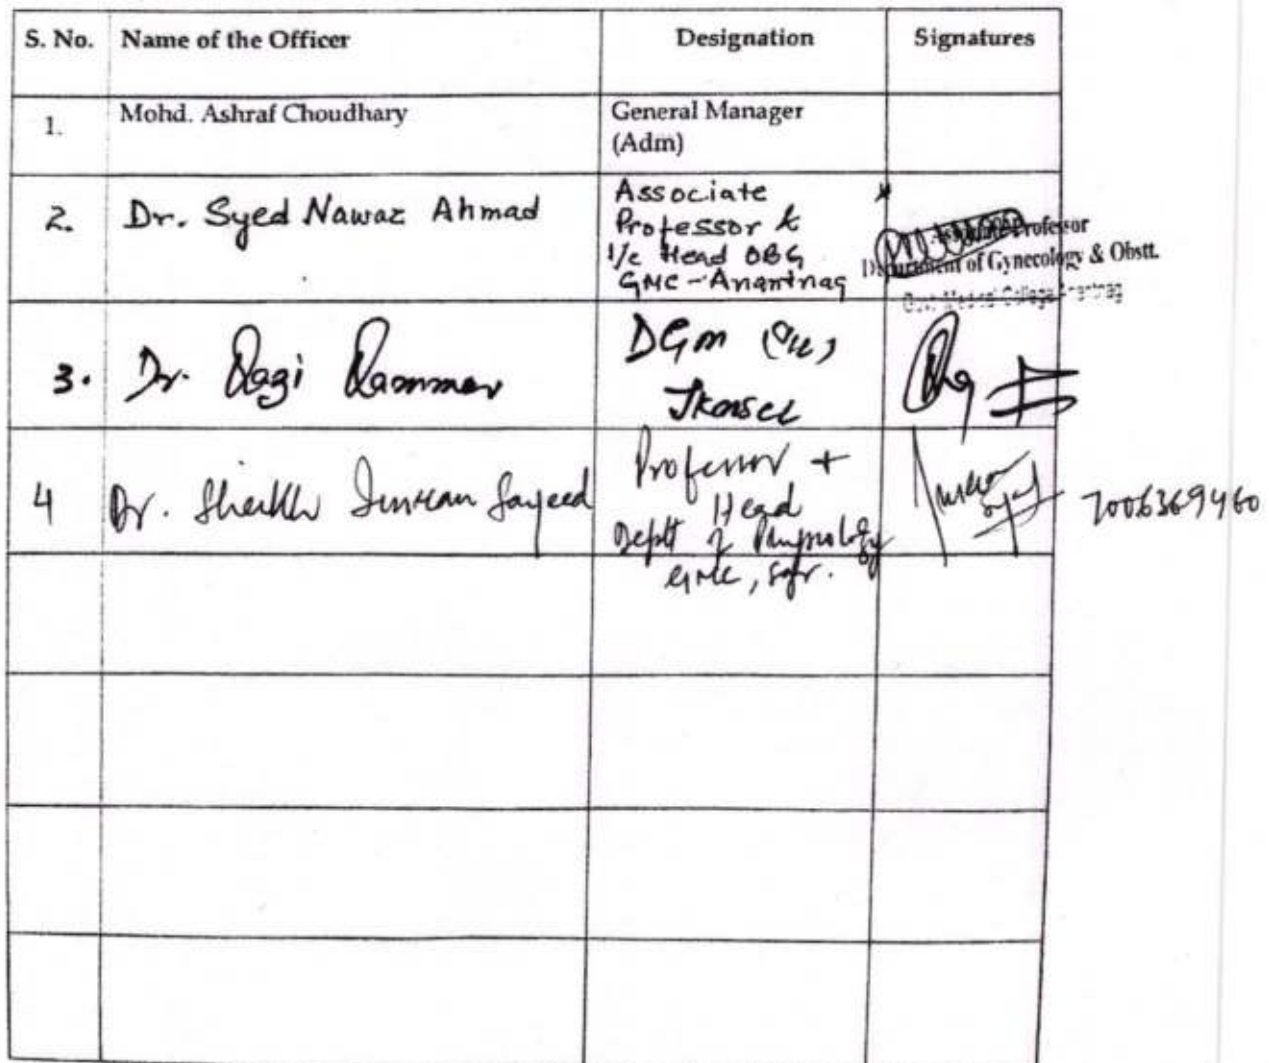 S. No. Name of the Officer Designation Signatures
1. Mohd. Ashraf Choudhary General Manager
(Adm)
2. Dr. Syed Nawaz Ahmad Associate
Professor &
I/c Head OBG
GMC-Anantnag
Professor
Department of Gynecology & Obstt.
Govt. Medical College Anantnag
3. Dr. Qazi Qammar DGM
4 Dr. Sheikh Imran Sayeed Professor +
Head
Deptt of
GMC, Sgr.
7006369460